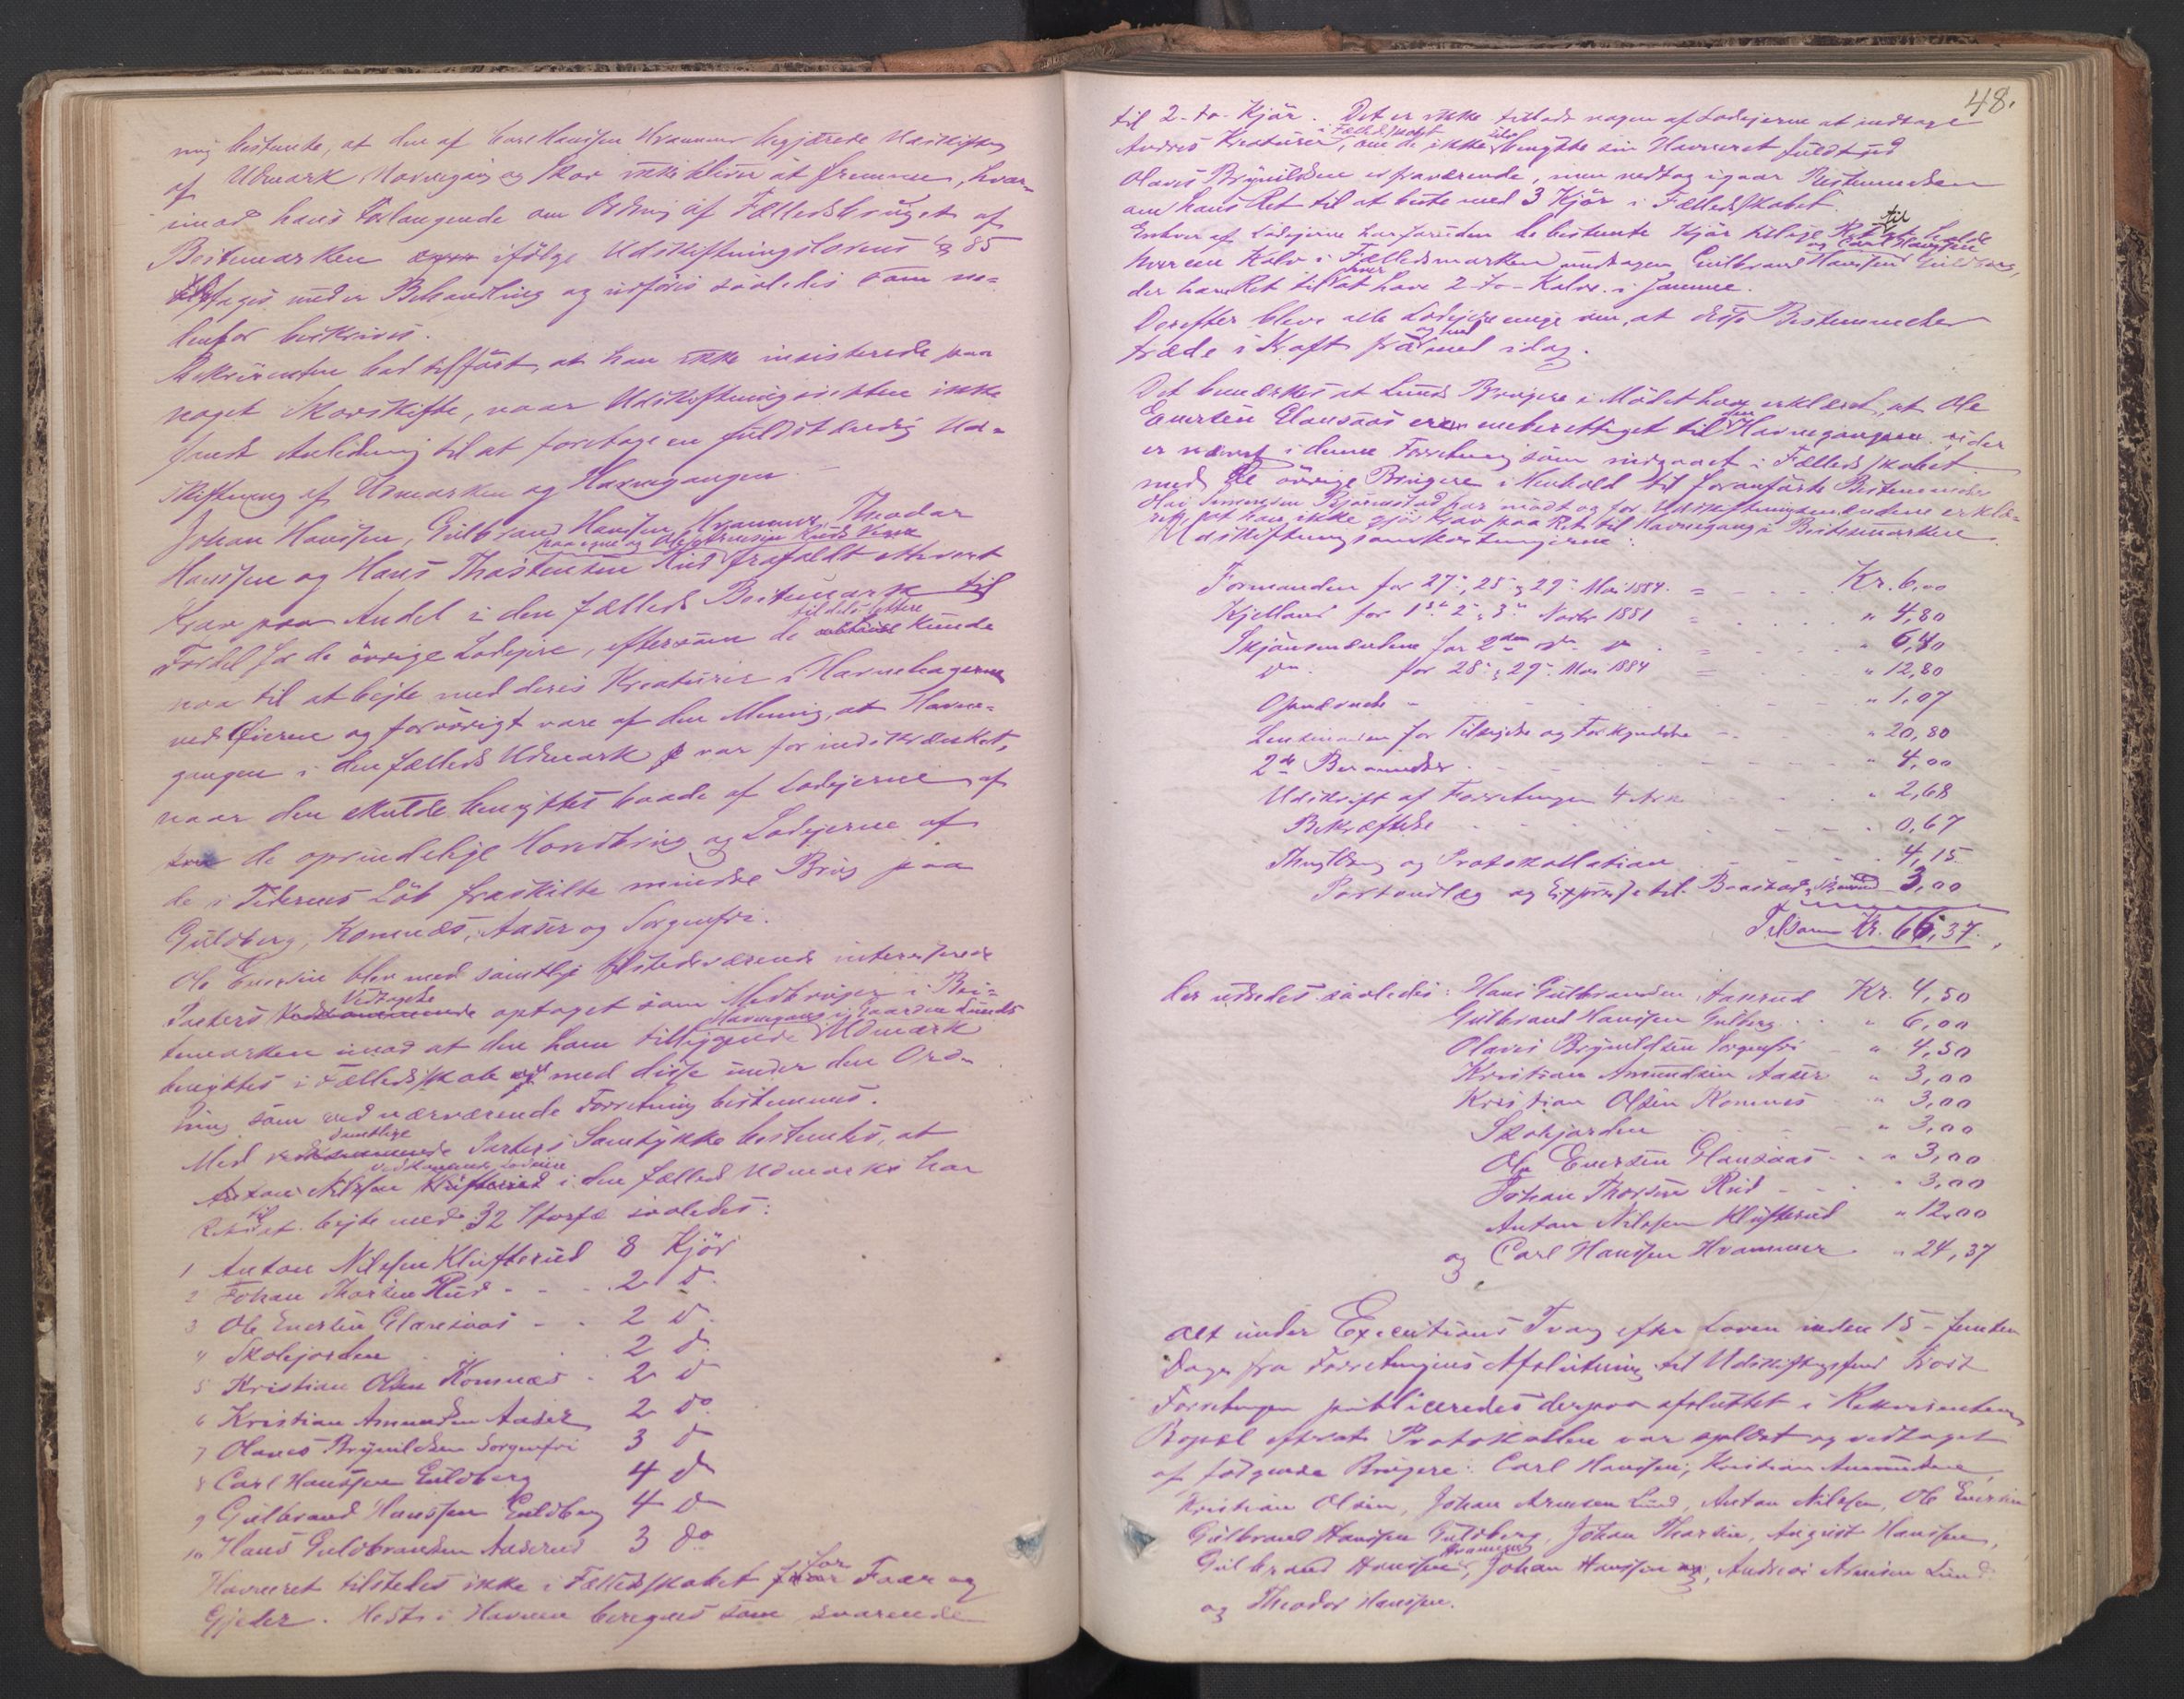 nig bestemte, at den af Carl Hanssen Hvammer begjærede Udskiftning
af Udmark Havnegang og Skov ikke bliver at fremme, hvor-
imod hans Forlangende om Ordning af Fælledsbruget af
Beitemarken ifølge Udskiftningslovens § 85
optages under Behandling og udføres saaledes som ne-
denfor beskrives.
Rekvirenten bad tilført, at han ikke insisterede paa
noget Skovskifte, naar Udskiftningsretten ikke
fandt Anledning til at foretage en fuldstændig Ud-
skiftning af Udmarken og Havnegangen.
Johan Hanssen, Gulbrand Hanssen Hvammer, Theodor
paa egne og Ole Arnesen Ruds Vegne
Hanssen og Hans Thostensen Rud frafaldt ethvert
Krav paa Andel i den fælleds Beitemark til
Fordel for de øvrige Lodejere, eftersom de tildels lettere kunde
naa til at bejte med deres Kreaturer i Havnehagerne
ved Øierne og forøvrigt vare af den Mening, at Havne-
gangen i den fælleds Udmark var for indskrænket,
naar den skulde benyttes baade af Lodejerne af
de oprindelige Hovedbrug og Lodejerne af
de i Tidernes Løb fraskilte mindre Brug paa
Guldberg, Komnæs, Aaser og Sorgenfri.
Ole Evensen blev med samtlige tilstedeværende interesserede
Parters Vedtagelse optaget som Medbruger i Bei-
temarken imod at den ham tilliggende Havnegang i Gaarden Lunds Udmark
benyttes i Fælledsskab med disse under den Ord-
ning som ved nærværende Forretning bestemmes.
Med samtlige Parters Samtykke bestemtes, at
vedkommende Lodeiere i den fælleds Udmark har
Ret til at bejte med 32 Storfæ saaledes:
1 Anton Nilssen Klufterud 8 Kjør
2 Johan Thorsen Rud - - - 2 do
3 Ole Evensen Glansaas - - 2 do
4 Skolejorden . . 2 do
5 Kristian Olsen Komnæs - 2 do
6 Kristian Amundsen Aaser 2 do
7 Olaves Brynildsen Sorgenfri 3 do
8 Carl Hanssen Guldberg 4 do
9 Gulbrand Hanssen Guldberg 4 do
10 Hans Guldbrandsen Aaserud 3 do
Havneret tilstedes ikke i Fælledsskabet for Faar og
Gjeder. Heste i Havnen beregnes som svarende
48.
til 2-to- Kjør. Det er ikke tilladt nogen af Lodejerne at indtage
Andres Kreaturer i Fælledsskabet, om de ikke selv benytte sin Havneret fuldt ud
Olaves Brynildsen er fraværende, men vedtog igaar Bestemmelsen
om hans Ret til at beite med 3 Kjør i Fælledsskabet.
Enhver af Lodejerne har foruden de bestemte Kjør tillige Ret til at holde
hver en Kalv i Fælledsmarken undtagen Gulbrand Hanssen og Carl Hanssen Guldberg,
der have Ret til at have hver 2-to- Kalve i samme.
Derefter bleve alle Lodejere enige om, at disse Bestemmelser
træde i Kraft fra og med idag.
Det bemærkes at Lunds Brugere i Mødet have erklæret, at Ole
Evensen Glansaas er meberettiget til den Havnegang, der
er nævnt i denne Forretning som indgaaet i Fælledsskabet
med de øvrige Brugere i Henhold til foranførte Bestemmelse
Olai Simensen Bjørnstad har mødt og for Udskiftningsmændene erklæ-
ret at han ikke gjør Krav paa Ret til Havnegang i Beitemarken
Udskiftningsomkostningerne:
Formanden for 27de, 28de og 29de Mai 1884. = . . . Kr. 6,00
Kjelland for 1ste 2den 3die Novbr 1881 = . . . „ 4,80
Skjønsmændene for 2den do do . = . . „ 6,40
do for 28de og 29de Mai 1884 = . . . „ 12,80
Opnævnelse - . . . „ 1,07
Lensmanden for Tilsigelse og Forkyndelse - . . „ 20,80
2de Berammelser . . . „ 4,00
Udskrift af Forretningen 4 Ark . . „ 2,68
Bekræftelse . . . „ 0,67
Thinglæsning og Protokollation . . „ 4,15
Portoudlæg og Expresse til 3,00
Tilsam Kr. 66,37.
der udredes saaledes: Hans Gulbrandsen Aaserud Kr. 4,50
Gulbrand Hanssen Gulberg . . „ 6,00
Olaves Brynildsen Sorgenfri - „ 4,50
Kristian Amundsen Aaser „ 3,00
Kristian Olsen Komnes „ 3,00
Skolejorden . . „ 3,00
Ole Evensen Glansaas - „ 3,00
Johan Thorsen Rud - . . „ 3,00
Anton Nilssen Klufterud „ 12,00
og Carl Hanssen Hvammer . „ 24,37
alt under Executions Tvang efter Loven inden 15 - femten
Dage fra Forretningens Afslutning
Forretningen publiceredes derpaa afsluttet i Rekvirentens
Bopæl efterat Protokollen var oplæst og vedtaget
af følgende Brugere: Carl Hanssen, Kristian Amundsen,
Kristian Olsen, Johan Arnesen Lund, Anton Nilssen, Ole Evensen
Gulbrand Hanssen Guldberg, Johan Thorsen, August Hanssen,
Gulbrand Hanssen Hvammer, Johan Hanssen, Andreas Arnesen Lund
og Theodor Hanssen.